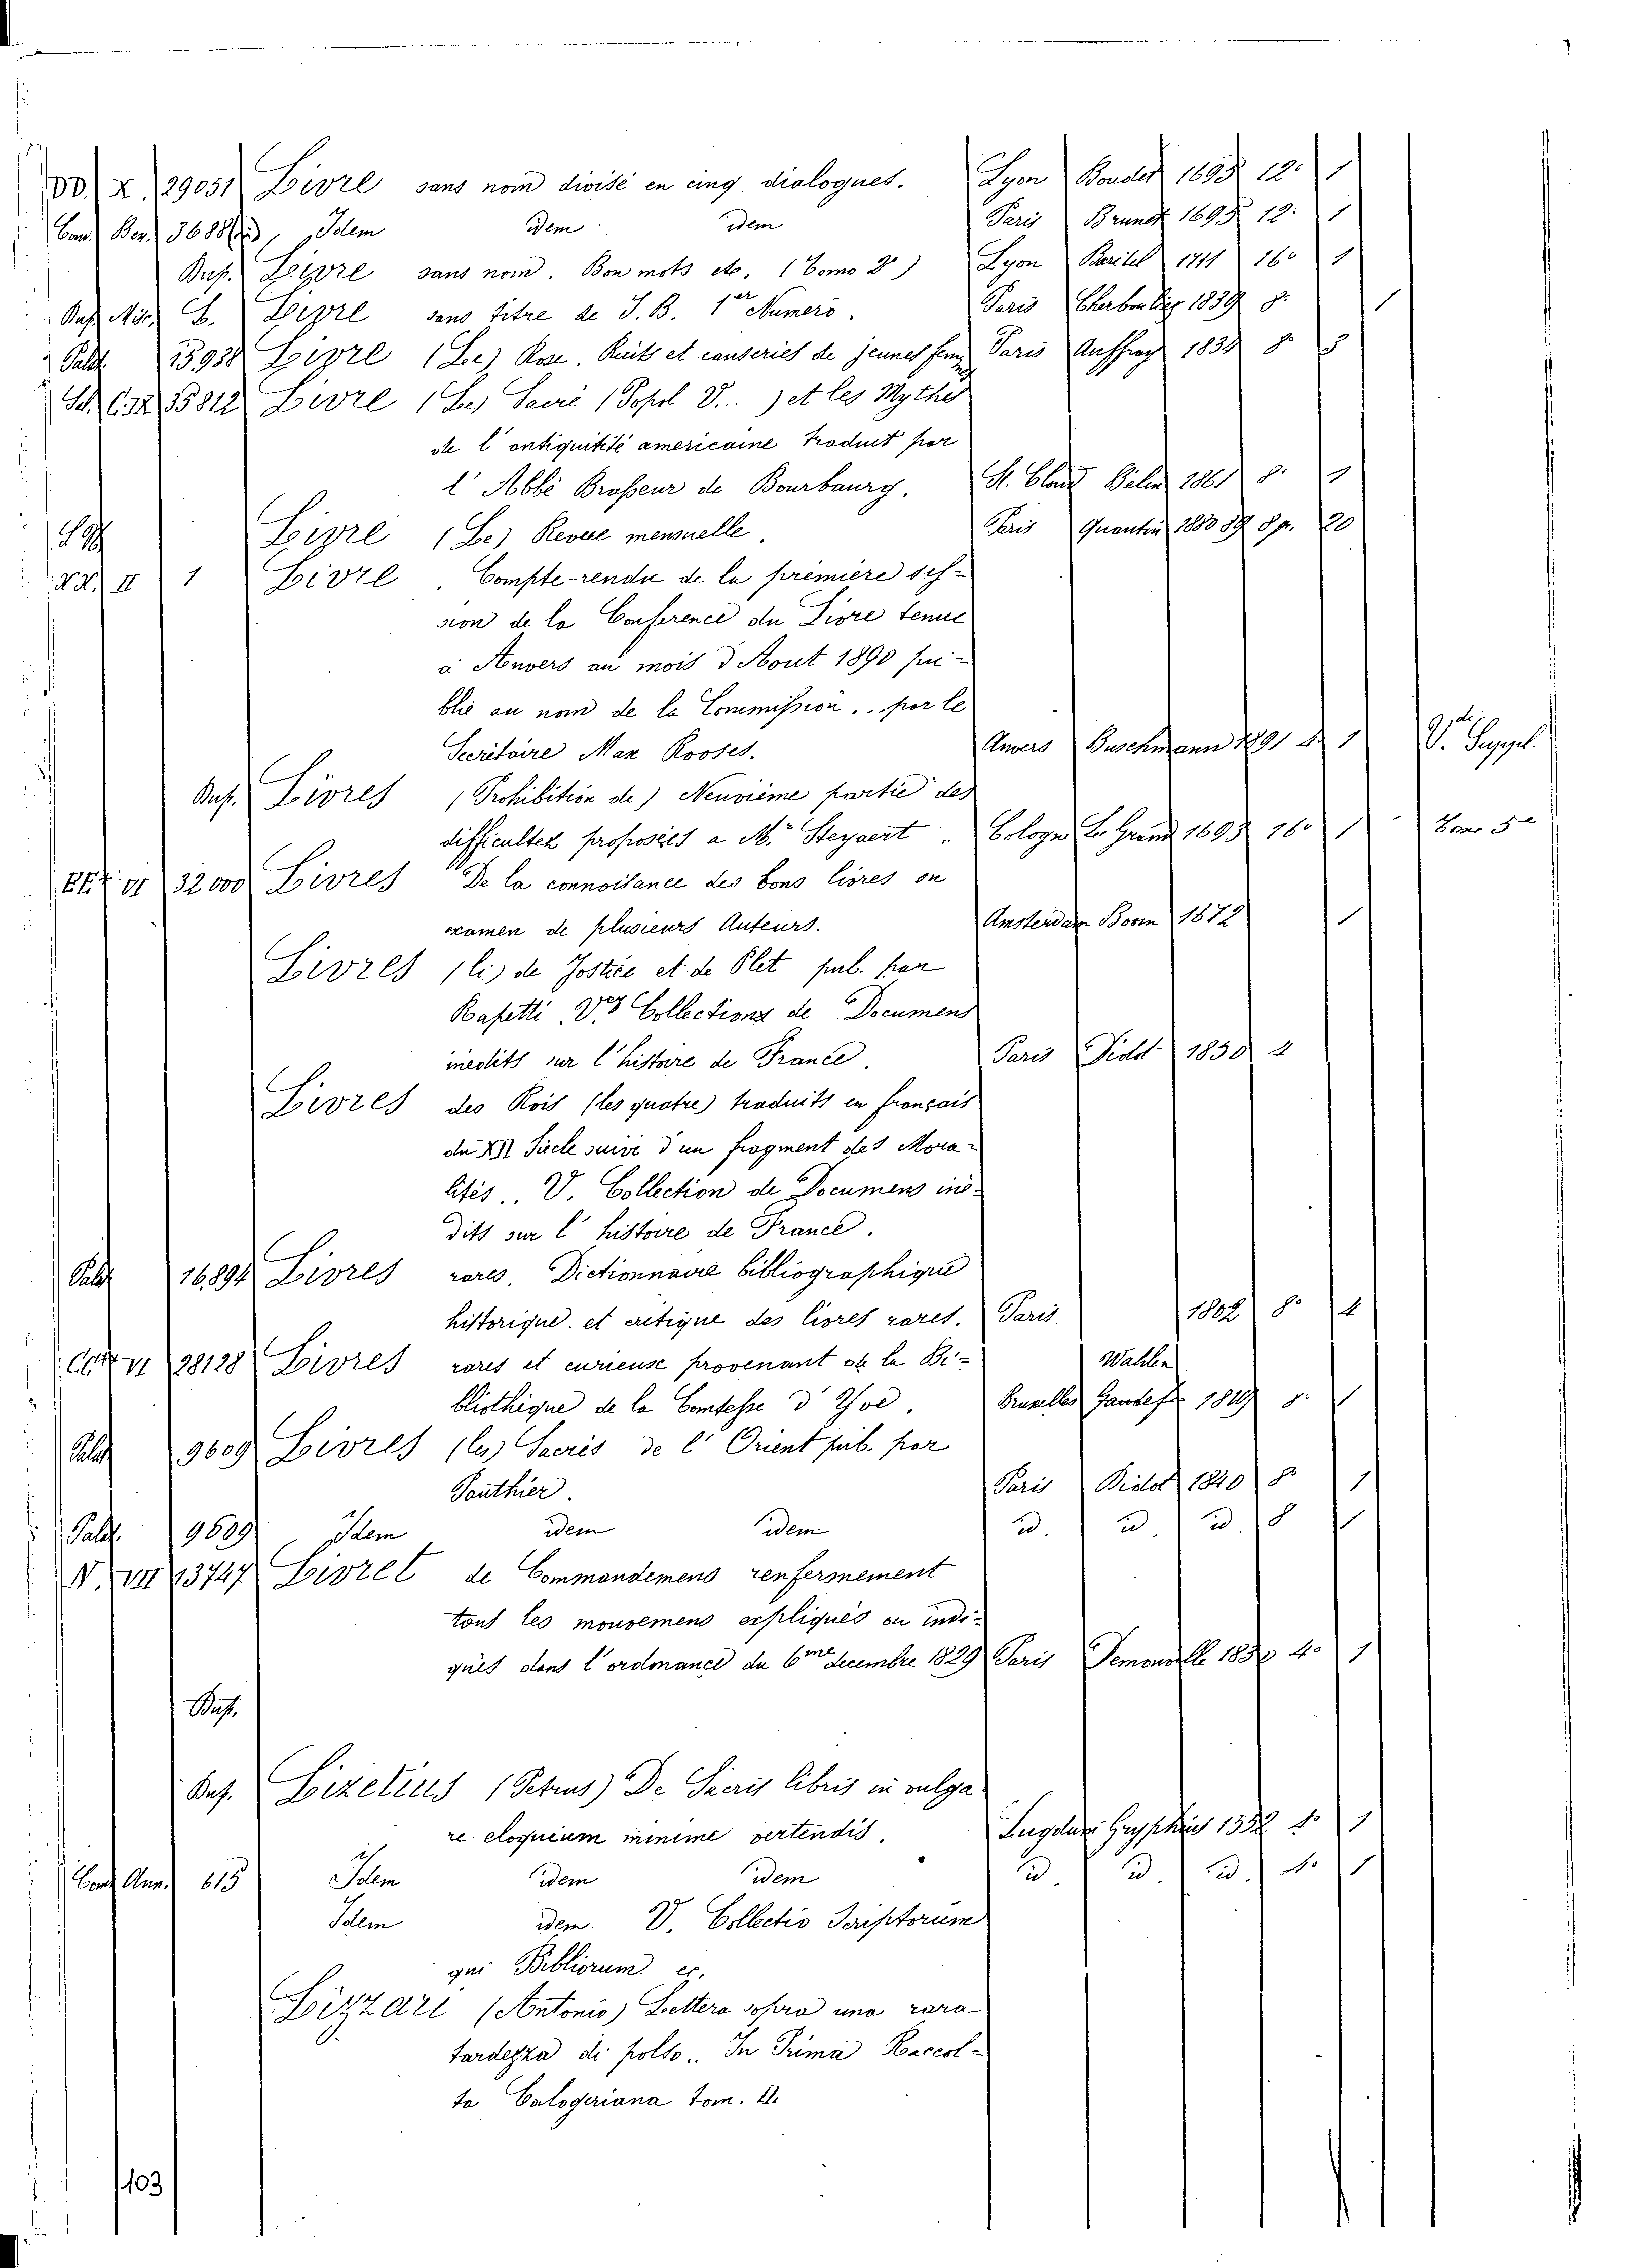 DD. X. 29051 Livre sans nom divisé en cinq dialogues. Lyon Boudet 1695 12° 1
Cand. Ber. 3688 Idem idem idem Paris Brunet 1695 12° 1
Bus. Livre sans nom. Bon mots etc. (Tomo 2°) Lyon Baritel 1711 16° 1
Bus. Mil. C. Livre sans titre de J. B. 1er Numero. Paris 1839 8° 1
Palat. 15938 Livre (Le) Rose. Recits et causeries de jeunes fem Paris 1834 8°
35812 Livre (Le) Sacré (Popol V...) et les Mythes
de l'antiquitité americaine traduit par
l'Abbé Brasseur de Bourbourg. St. Cloud Belin 1861 8° 1
Livre (Le) Revue mensuelle. Paris Quantin 1880 89 8 p. 20
II 1 Livre. Compte-rendu de la première ses-
sion de la Conference du Livre tenue
a Anvers au mois d'Aout 1890 pu-
blié au nom de la Commission... par le
Secrétaire Max Rooses. Anvers Buschmann 1891 4 1 V. Suppel.
Bus. Livres (Prohibition de) Neuvième partie des
difficultez proposées a Mr. Steyaert. Cologne Le Grand 1695 16° 1 Tomo 5°
VI 32000 Livres De la connoisance des bons livres ou
examen de plusieurs Auteurs. Amsterdam Boom 1672 1
Livres (li) de Jostice et de Plet pub. par
Rapetti. Vs Collections de Documens
inedits sur l'histoire de France. Paris Didot 1850 4
Livres des Rois (les quatre) traduits en français
du XII Siecle suivi d'un fragment des Mora-
lités.. V. Collection de Documens iné-
dits sur l'histoire de France.
Palat. 16894 Livres rares. Dictionnaire bibliographique
historique et critique des livres rares. Paris 1802 8° 4
VI 28128 Livres rares et curieuse provenant de la Bi- Wahlen
bliothèque de la Comtesse d'Yve. Bruxelles 1819 8° 1
Palat. 9609 Livres (les) Sacrés de l'Orient pub. par
Pauthier. Paris Didot 1840 8° 1
Palat. 9609 Idem idem idem id. id. id. 8 1
N. VII 13747 Livret de Commandemens renfermement
tous les mouvemens expliqués ou indi-
qués dans l'ordonance du 6me decembre 1829 Paris Demonville 1830 4° 1
Bus.
Bus. Lizetius (Petrus) De Sacris libris in vulga
re eloquium minime vertendis. Lugduni Gryphius 1552 4° 1
Cand. Ann. 615 Idem idem idem id. id. id. 4° 1
Idem idem V. Collectio Scriptorum
qui Bibliorum ec.
Lizzari (Antonio) Lettera sopra una rara
tardezza di polso.. In Prima Raccol-
ta Calogeriana tom. II.
103